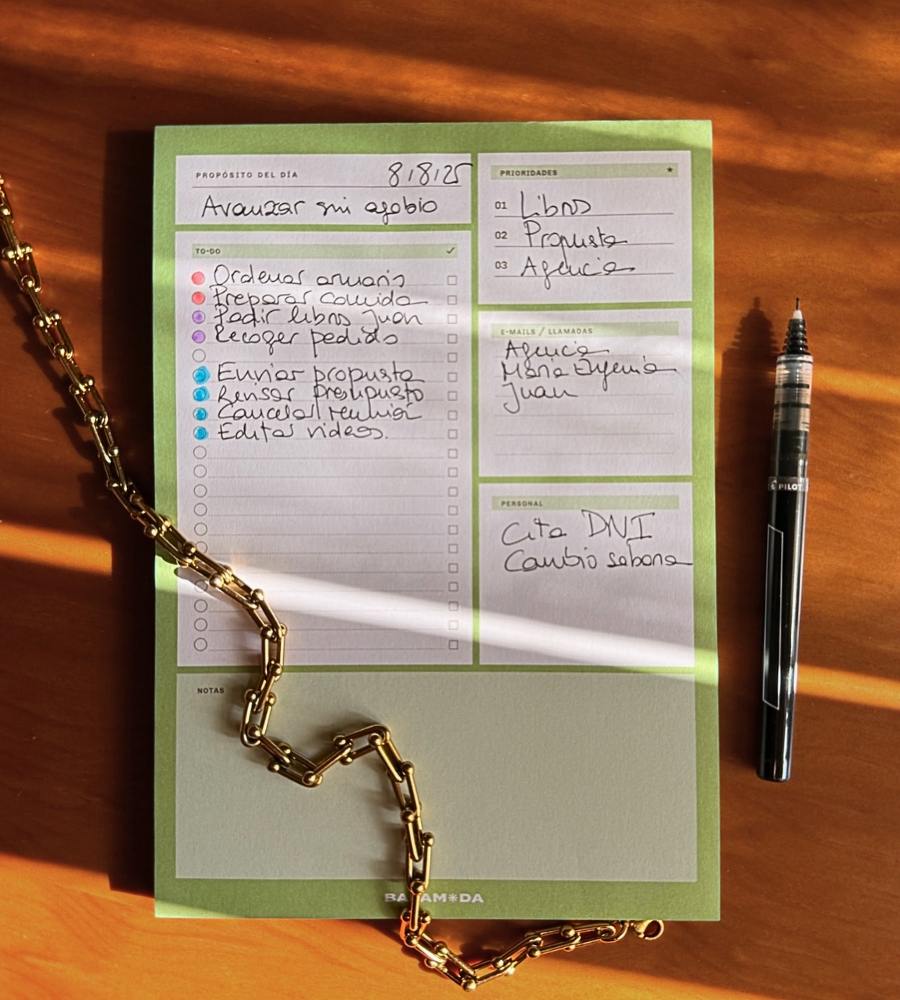 PROPÓSITO DEL DÍA
8/8/25
Avanzar sin agobio
TO-DO
Ordenar armario
Preparar comida
Pedir libros Juan
Recoger pedido
Enviar propuesta
Revisar presupuesto
Cancelar reunión
Editar videos.
PRIORIDADES
01 Libros
02 Propuesta
03 Agencia
E-MAILS / LLAMADAS
Agencia
María Eugenia
Juan
PERSONAL
Cita DNI
Cambio sabana
NOTAS
PILOT